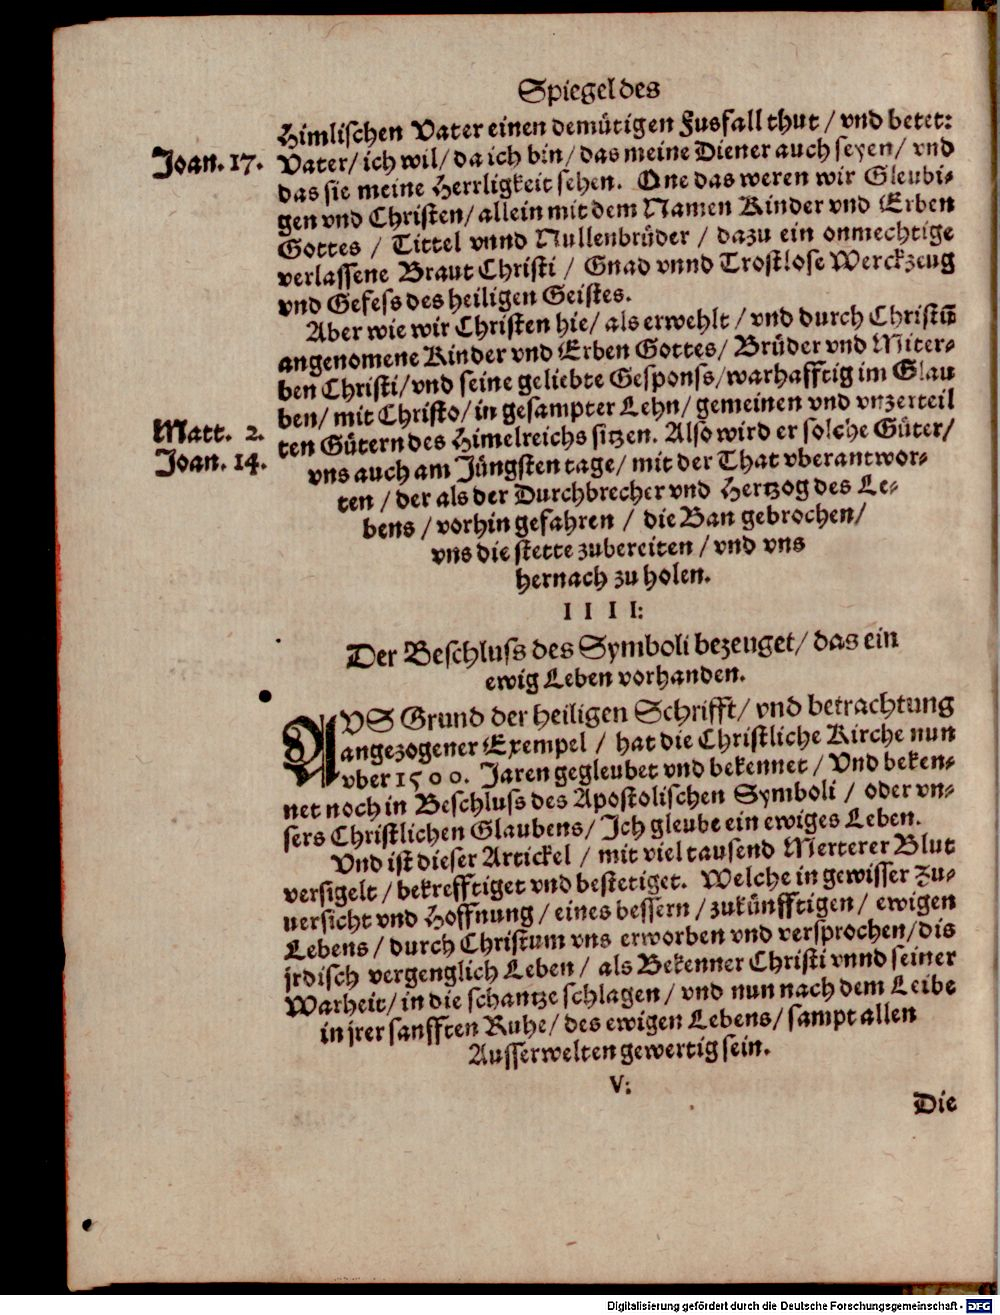 Spiegel des
Himlischen Vater einen demütigen Fusfall thut / vnd betet:
Joan. 17.
Vater/ ich wil/ da ich bin/ das meine Diener auch seyen/ vnd
das sie meine Herrligkeit sehen. One das weren wir Gleubi-
gen vnd Christen/ allein mit dem Namen Kinder vnd Erben
Gottes / Tittel vnnd Nullenbrüder / dazu ein onmechtige
verlassene Braut Christi / Gnad vnnd Trostlose Werckzeug
vnd Gefess des heiligen Geistes.
Aber wie wir Christen hie/ als erwehlt / vnd durch Christū
angenomene Kinder vnd Erben Gottes/ Brüder vnd Miter-
ben Christi/ vnd seine geliebte Gesponss/ warhafftig im Glau
ben/ mit Christo/ in gesampter Lehn/ gemeinen vnd vnzerteil
Matt. 2.
ten Gütern des Himelreichs sitzen. Also wird er solche Güter/
Joan. 14.
vns auch am Jüngsten tage/ mit der That vberantwor-
ten / der als der Durchbrecher vnd Hertzog des Le-
bens / vorhin gefahren / die Ban gebrochen/
vns die stette zubereiten / vnd vns
hernach zu holen.
I I I I:
Der Beschluss des Symboli bezeuget/ das ein
ewig Leben vorhanden.
AVS Grund der heiligen Schrifft/ vnd betrachtung
angezogener Exempel / hat die Christliche Kirche nun
vber 1500. Jaren gegleubet vnd bekennet / Vnd beken-
net noch in Beschluss des Apostolischen Symboli / oder vn-
sers Christlichen Glaubens/ Ich gleube ein ewiges Leben.
Vnd ist dieser Artickel / mit viel tausend Merterer Blut
versigelt / bekrefftiget vnd bestetiget. Welche in gewisser Zu-
uersicht vnd Hoffnung / eines bessern / zukünfftigen / ewigen
Lebens / durch Christum vns erworben vnd versprochen/ dis
jrdisch vergenglich Leben / als Bekenner Christi vnnd seiner
Warheit/ in die schantze schlagen / vnd nun nach dem Leibe
in jrer sanfften Ruhe/ des ewigen Lebens/ sampt allen
Ausserwelten gewertig sein.
V:
Die
Digitalisierung gefördert durch die Deutsche Forschungsgemeinschaft - DFG